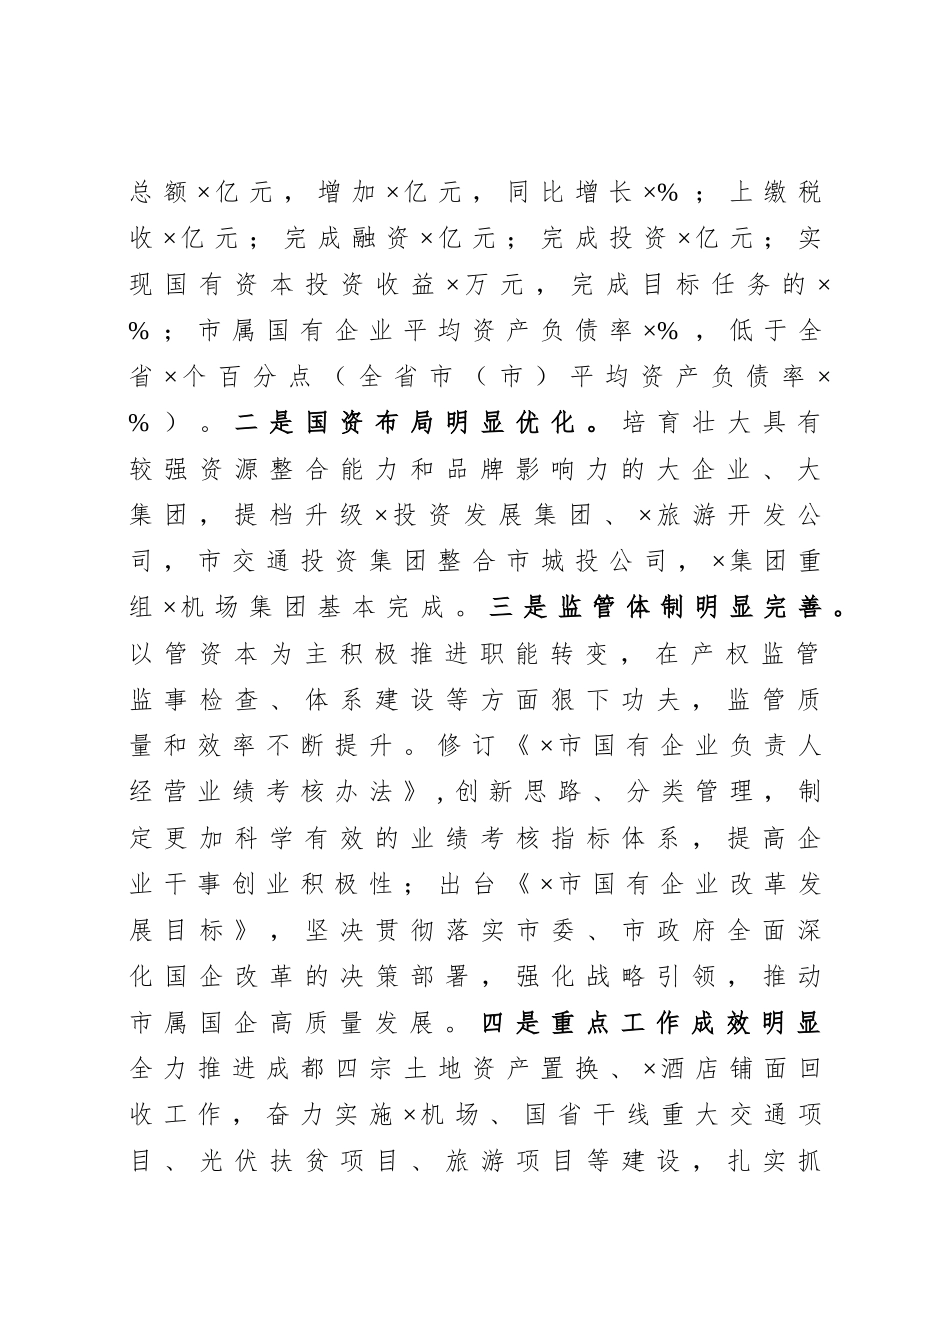 总额×亿元，增加×亿元，同比增长×%；上缴税
收×亿元；完成融资×亿元；完成投资×亿元；实
现国有资本投资收益×万元，完成目标任务的×
%；市属国有企业平均资产负债率×%，低于全
省×个百分点（全省市（市）平均资产负债率×
%）。二是国资布局明显优化。培育壮大具有
较强资源整合能力和品牌影响力的大企业、大
集团，提档升级×投资发展集团、×旅游开发公
司，市交通投资集团整合市城投公司，×集团重
组×机场集团基本完成。三是监管体制明显完善。
以管资本为主积极推进职能转变，在产权监管
监事检查、体系建设等方面狠下功夫，监管质
量和效率不断提升。修订《×市国有企业负责人
经营业绩考核办法》,创新思路、分类管理，制
定更加科学有效的业绩考核指标体系，提高企
业干事创业积极性；出台《×市国有企业改革发
展目标》，坚决贯彻落实市委、市政府全面深
化国企改革的决策部署，强化战略引领，推动
市属国企高质量发展。四是重点工作成效明显
全力推进成都四宗土地资产置换、×酒店铺面回
收工作，奋力实施×机场、国省干线重大交通项
目、光伏扶贫项目、旅游项目等建设，扎实抓